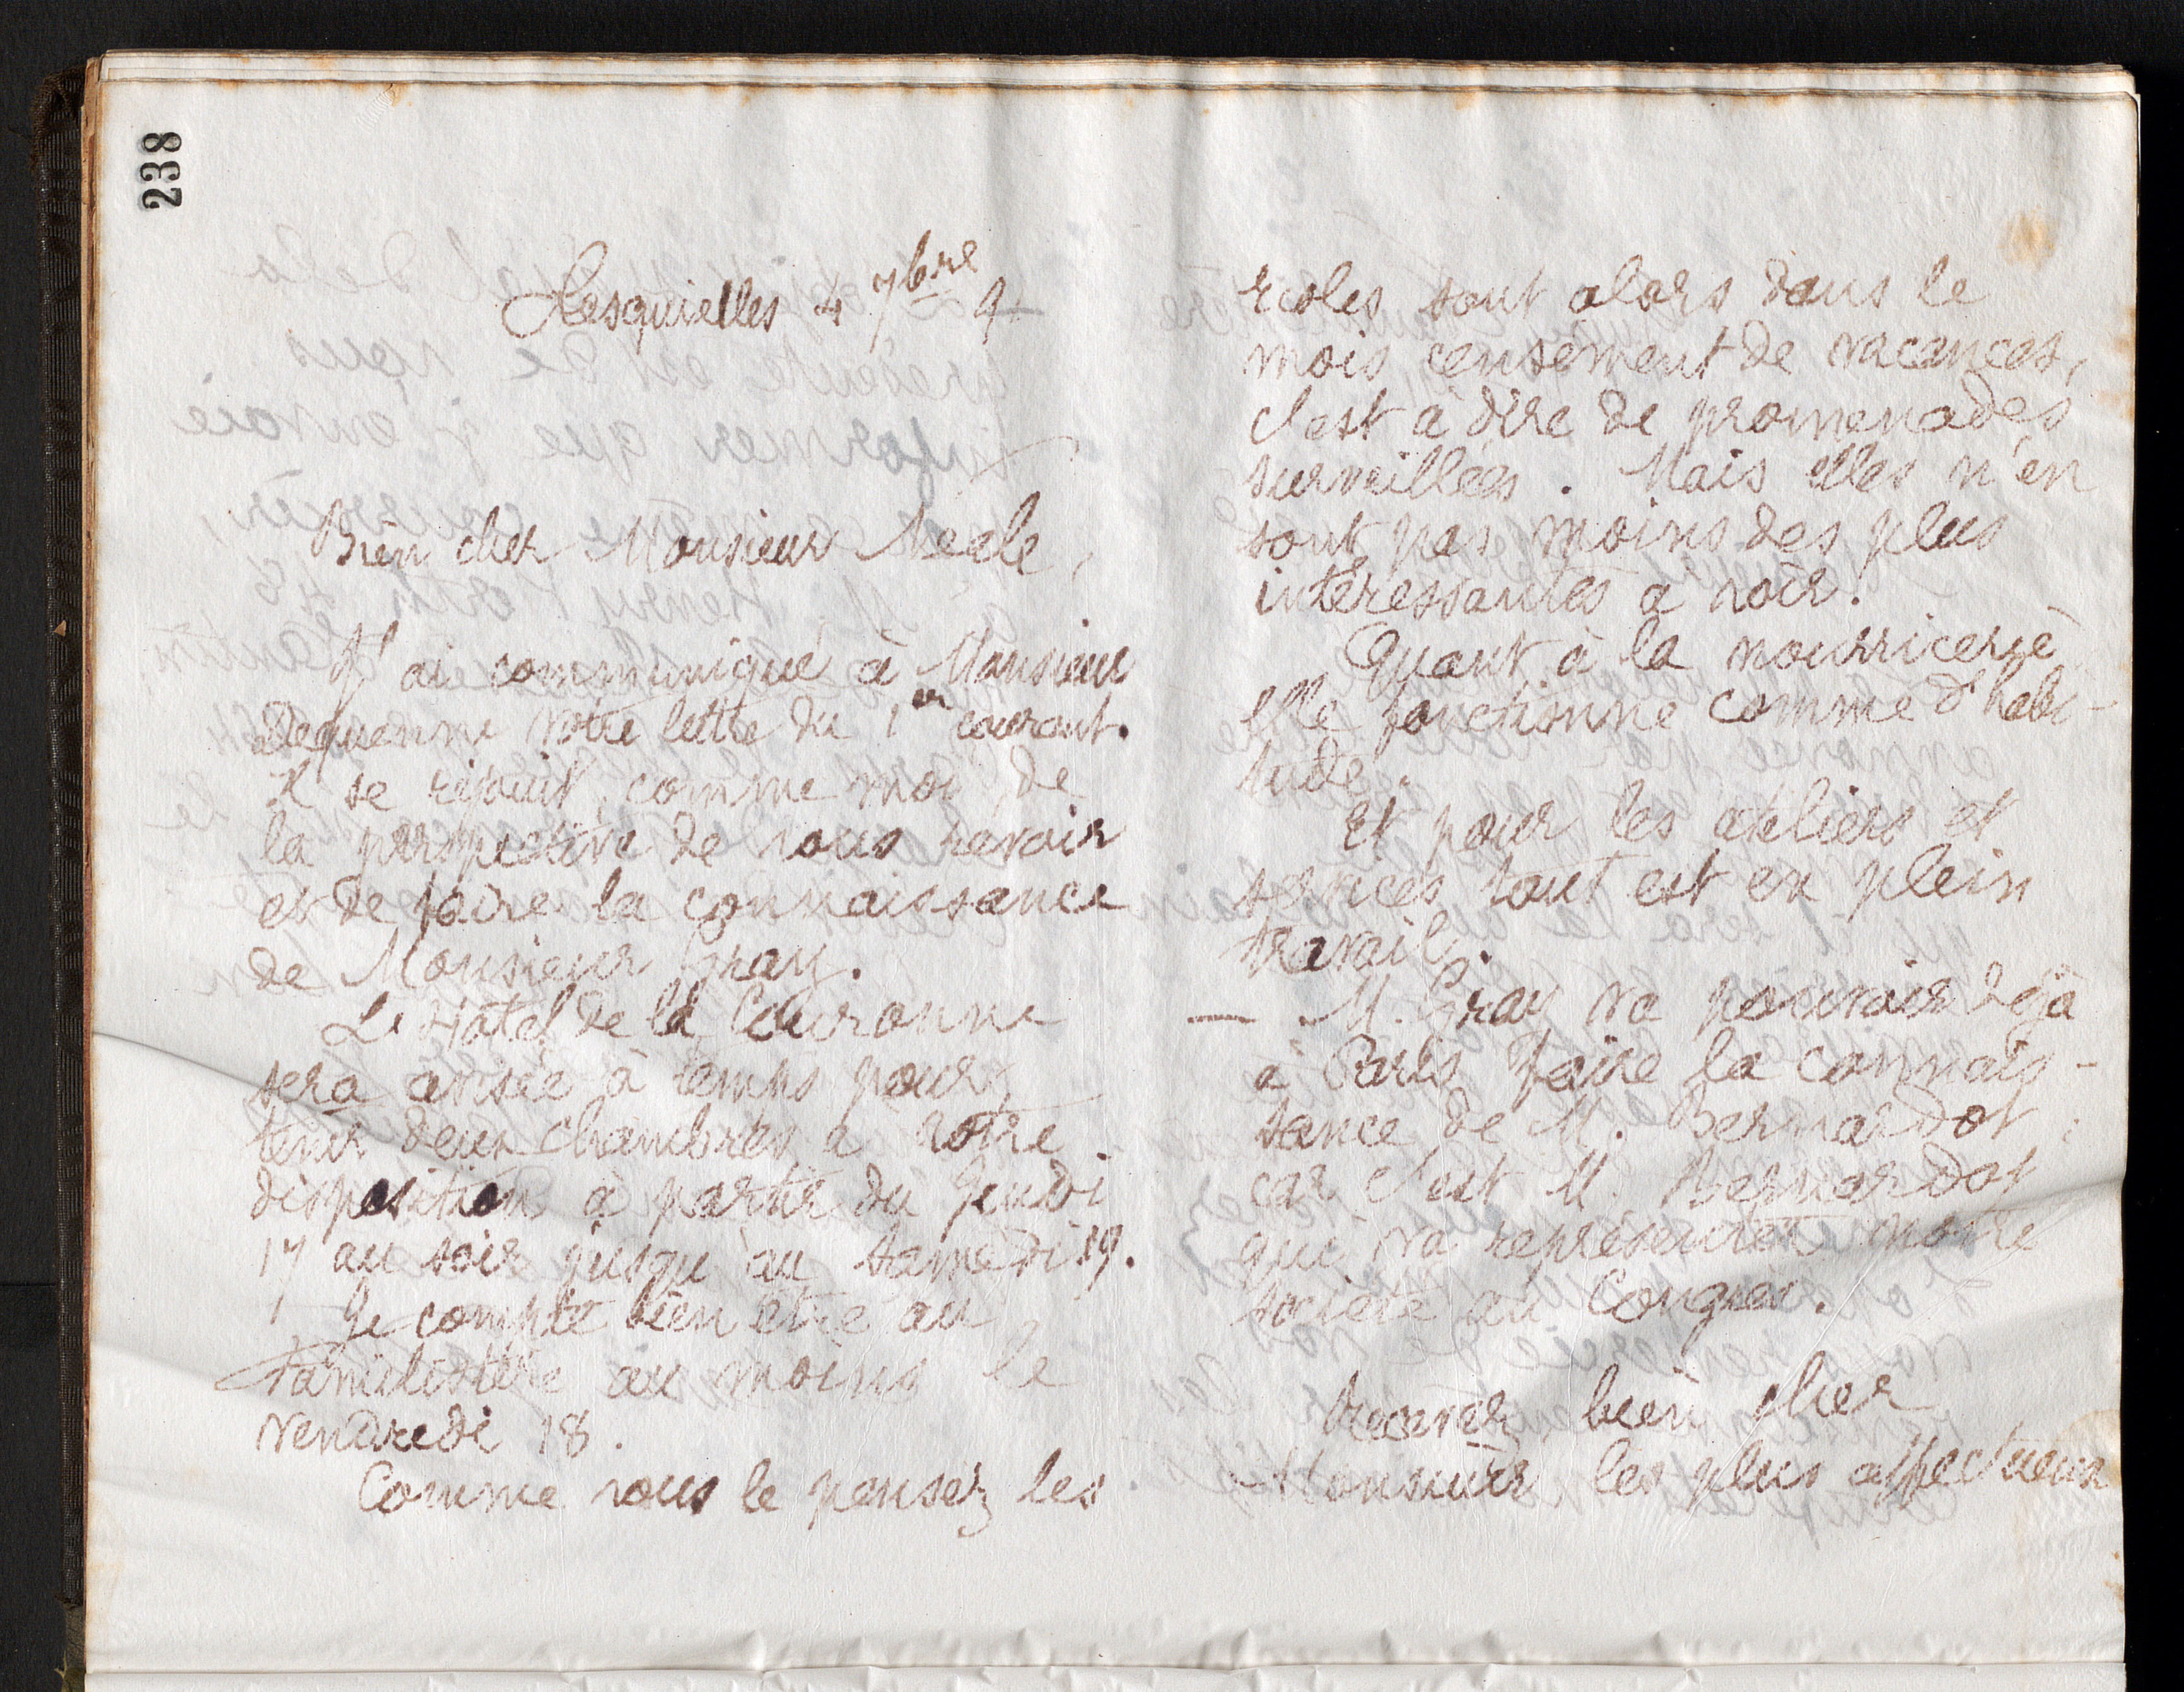 238
Lesquielles 4 7bre 9
Bien cher Monsieur Neale,
J'ai communiqué à Monsieur
Dequenne votre lettre du 1er courant.
Il se réjouit, comme moi, de
la perspective de vous revoir
et de faire la connaissance
de Monsieur Gray.
L'Hôtel de la Couronne
sera avisée à temps pour
tenir deux chambres à votre
disposition à partir du Jeudi
17 au soir jusqu'au samedi 19.
Je compte bien être au
Familistère au moins le
vendredi 18.
Comme vous le pensez les
écoles sont alors dans le
mois censément de vacances,
c'est à dire de promenades
surveillées. Mais elles n'en
sont pas moins des plus
intéressantes à voir.
Quant à la nourricerie
elle fonctionne comme d'habi-
tude.
Et pour les ateliers et
services tout est en plein
travail.
— M. Gray va pouvoir déjà
à Paris faire la connais-
sance de M. Bernardot;
car c'est M. Bernardot
qui va représenter notre
société au Congrès.
Recevez bien cher
Monsieur, les plus affectueux